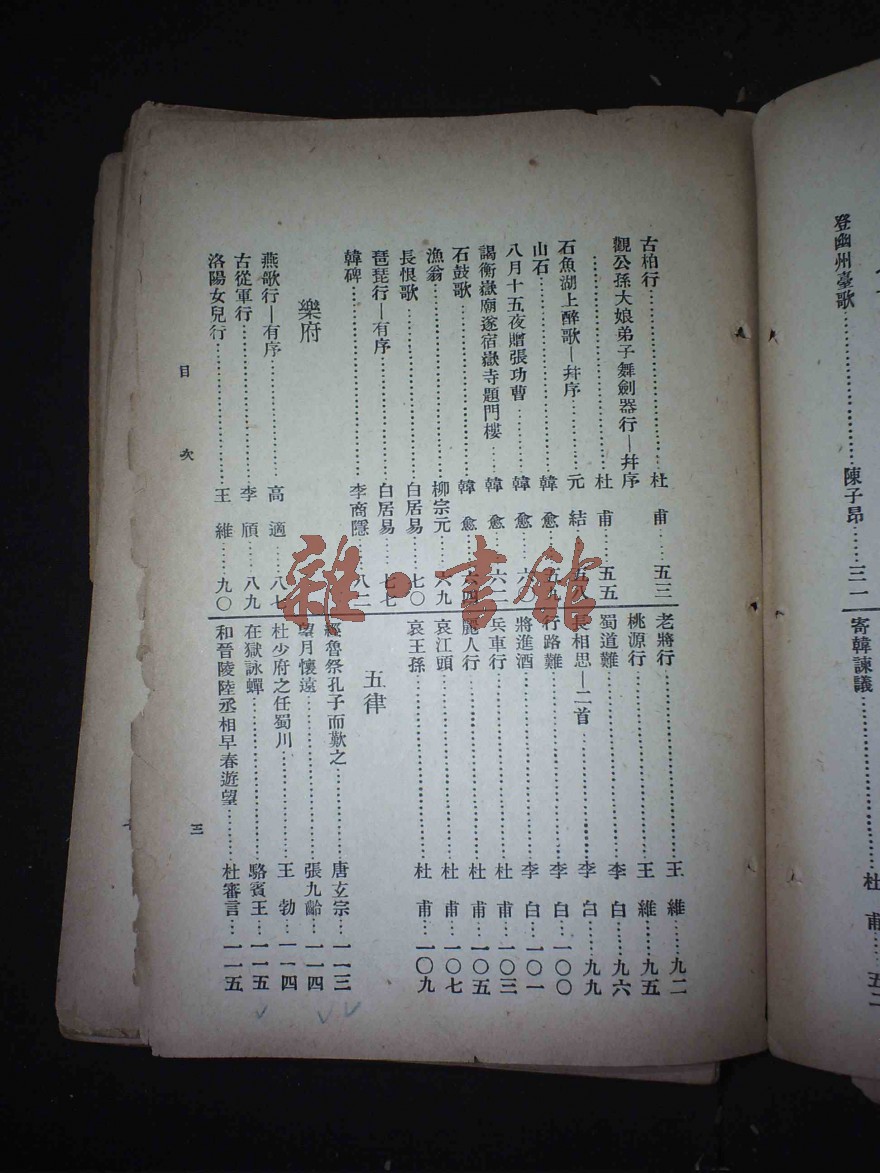 登幽州臺歌……陳子昂……三一
寄韓諫議……杜甫……五二
古柏行……杜甫……五三
觀公孫大娘弟子舞劍器行—幷序
……杜甫……五五
石魚湖上醉歌—幷序……元結……五八
山石……韓愈……五九
八月十五夜贈張功曹……韓愈……六〇
謁衡嶽廟遂宿嶽寺題門樓……韓愈……六二
石鼓歌……韓愈……六四
漁翁……柳宗元……六九
長恨歌……白居易……七〇
琵琶行—有序……白居易……七七
韓碑……李商隱……八二
樂府
燕歌行—有序……高適……八七
古從軍行……李頎……八九
洛陽女兒行……王維……九〇
老將行……王維……九二
桃源行……王維……九五
蜀道難……李白……九六
長相思—二首……李白……九九
行路難……李白……一〇〇
將進酒……李白……一〇一
兵車行……杜甫……一〇三
麗人行……杜甫……一〇五
哀江頭……杜甫……一〇七
哀王孫……杜甫……一〇九
五律
經魯祭孔子而歎之……唐玄宗……一一三
望月懷遠……張九齡……一一四
杜少府之任蜀川……王勃……一一四
在獄詠蟬……駱賓王……一一五
和晉陵陸丞相早春遊望……杜審言……一一五
目次
三
雜·書館